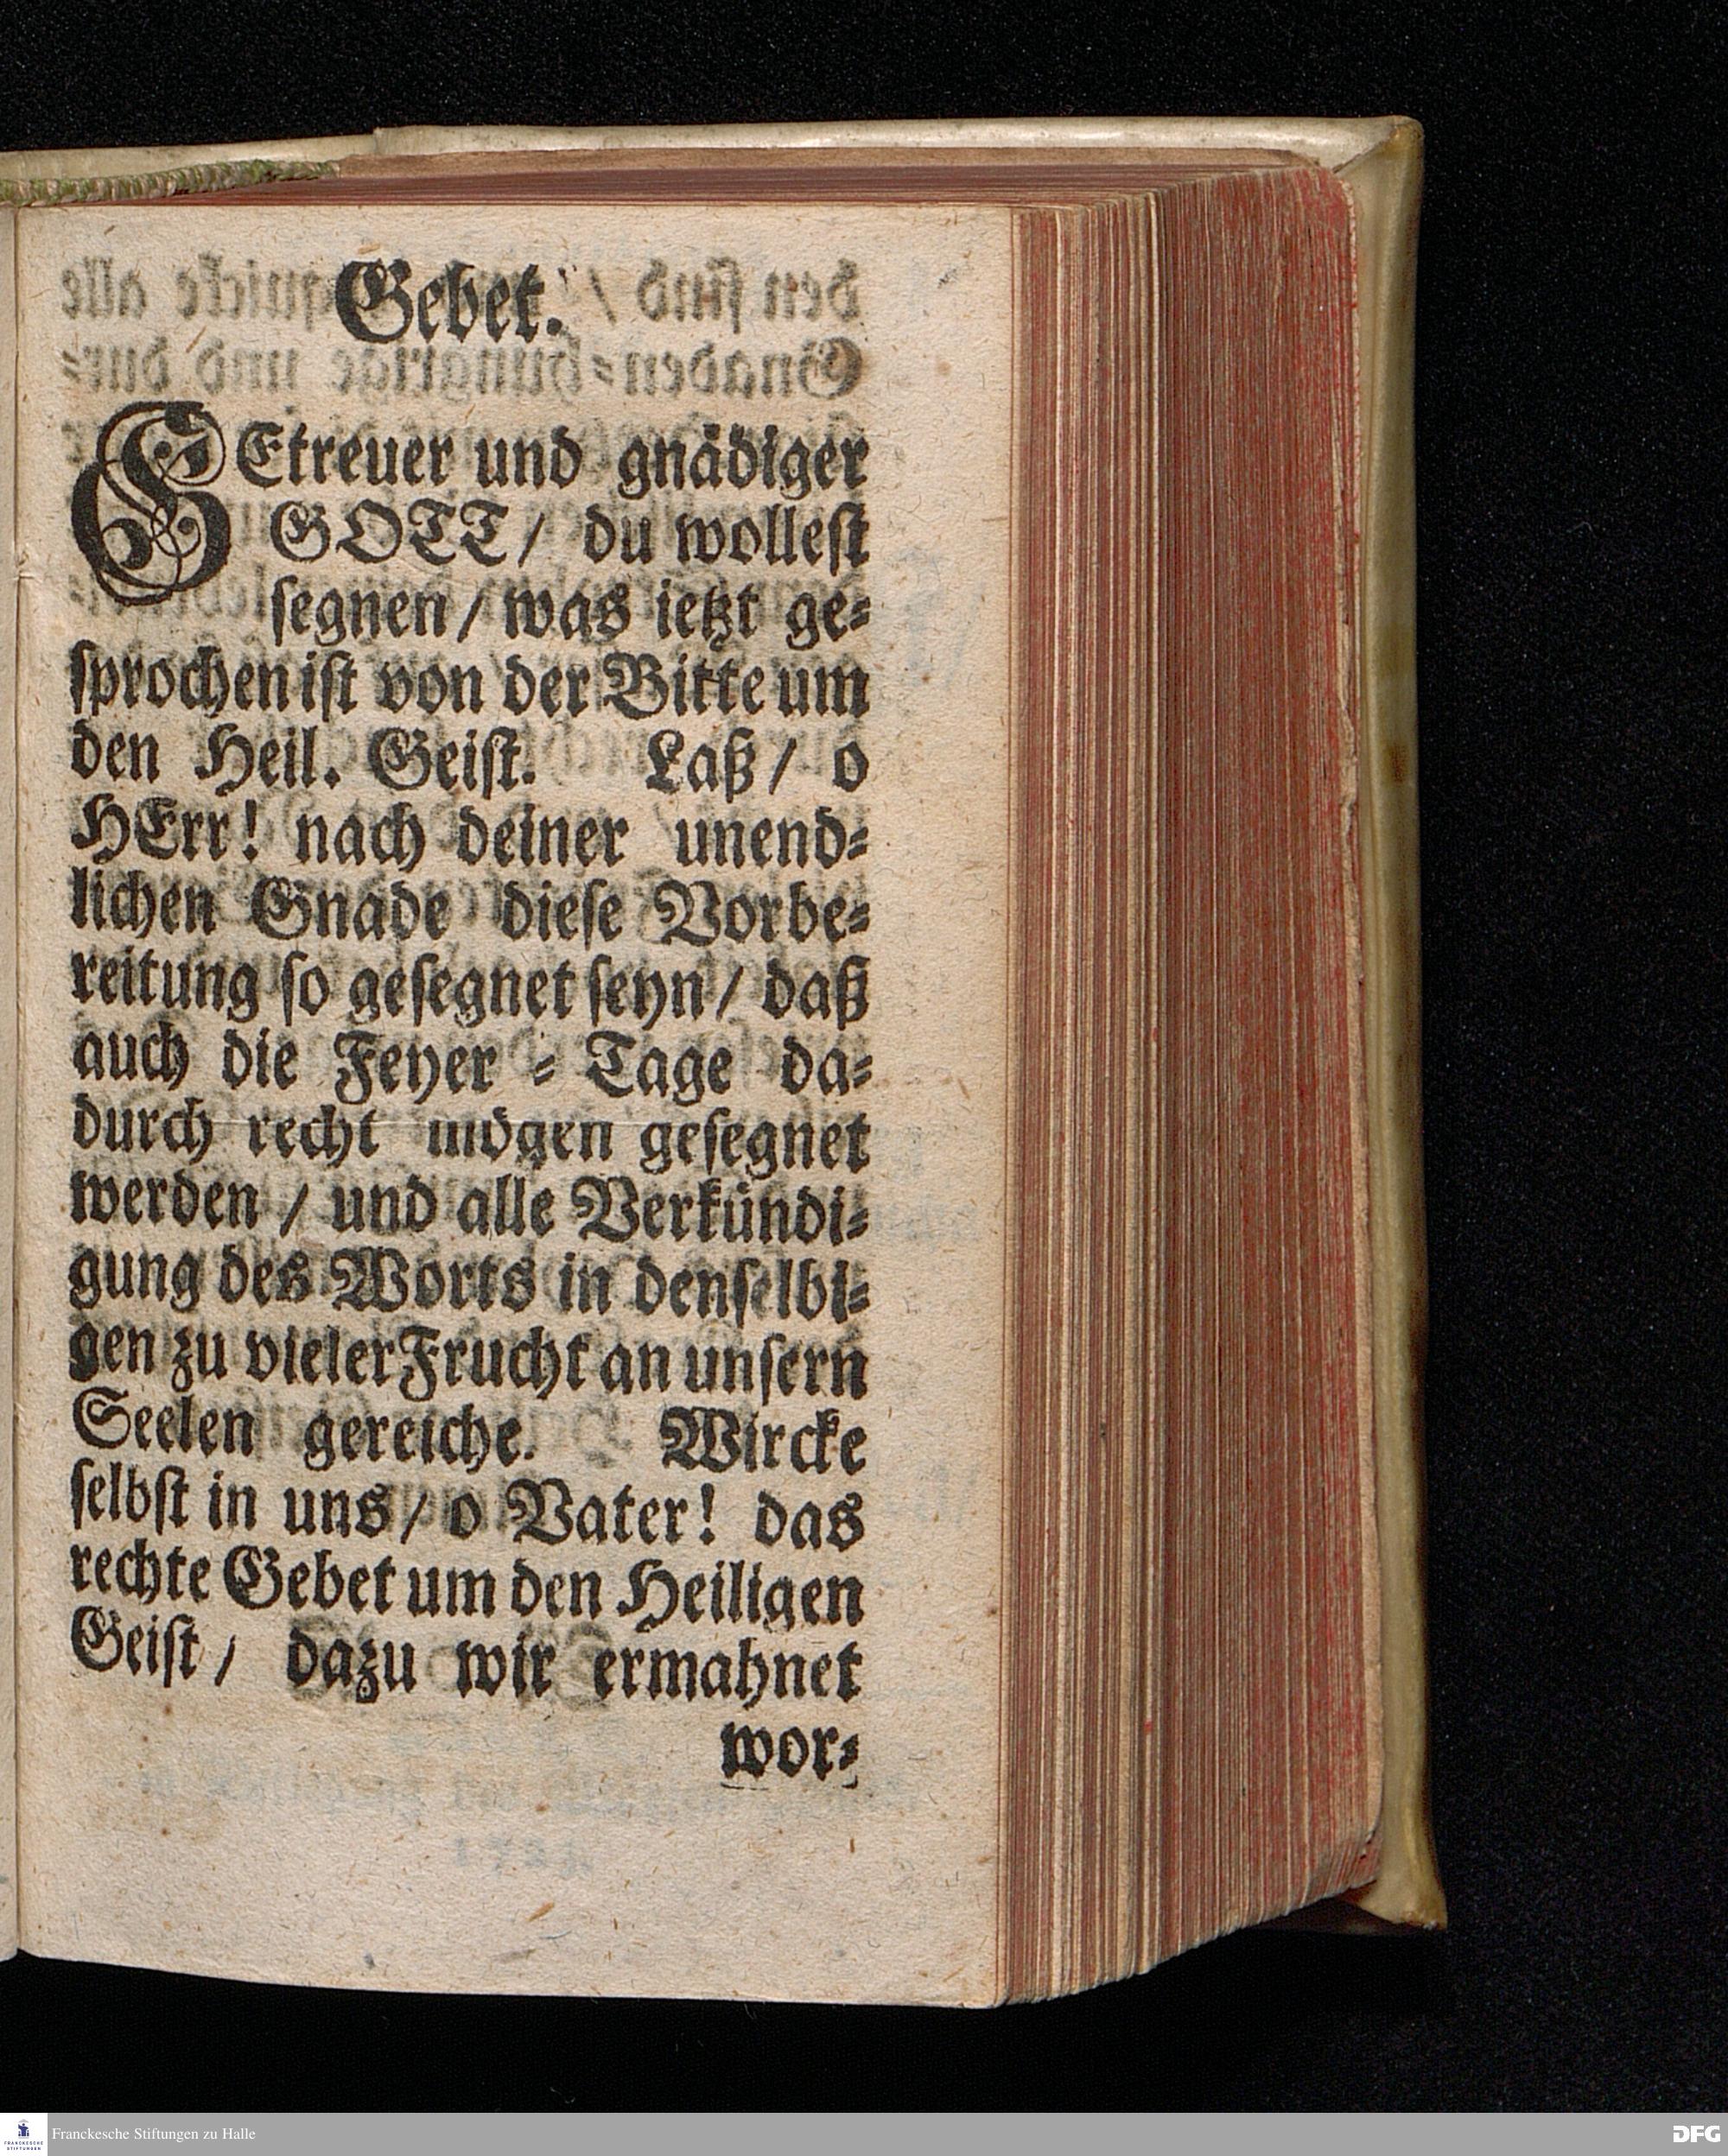 Gebet.
GEtreuer und gnädiger
GOTT/ du wollest
segnen/ was ietzt ge=
sprochen ist von der Bitte um
den Heil. Geist. Laß/ o
HErr! nach deiner unend=
lichen Gnade diese Vorbe=
reitung so gesegnet seyn/ daß
auch die Feyer = Tage da=
durch recht mögen gesegnet
werden / und alle Verkündi=
gung des Worts in denselbi=
gen zu vieler Frucht an unsern
Seelen gereiche. Wircke
selbst in uns/ o Vater! das
rechte Gebet um den Heiligen
Geist/ dazu wir ermahnet
wor=
FRANCKESCHE
STIFTUNGEN
Franckesche Stiftungen zu Halle
DFG